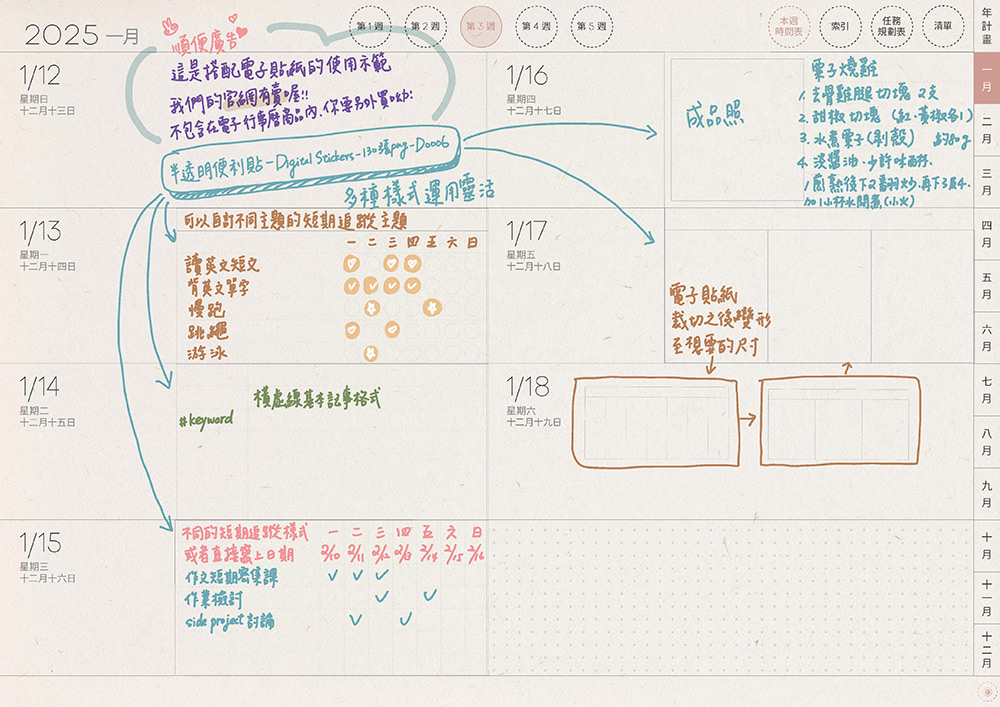 2025 一月
第1週
第2週
第3週
第4週
第5週
本週
時間表
索引
任務
規劃表
清單
年計畫
一月
二月
三月
四月
五月
六月
七月
八月
九月
十月
十一月
十二月
順便廣告
這是搭配電子貼紙的使用示範
我們的官網有賣喔!!
不包含在電子行事曆商品內,你要另外買呦!
半透明便利貼-Digital Stickers-130張png-D0006
多種樣式運用靈活
1/12
星期日
十二月十三日
1/13
星期一
十二月十四日
可以自訂不同主題的短期追蹤主題
一 二 三 四 五 六 日
讀英文短文
背英文單字
慢跑
跳繩
游泳
1/14
星期二
十二月十五日
橫虛線基本記事格式
#keyword
1/15
星期三
十二月十六日
不同的短期追蹤樣式 一 二 三 四 五 六 日
或者直接寫上日期 2/10 2/11 2/12 2/13 2/14 2/15 2/16
作文短期密集課
作業檢討
side project 討論
1/16
星期四
十二月十七日
成品照
栗子燒雞
1. 去骨雞腿切塊 2支
2. 甜椒切塊 (紅、黃椒各1)
3. 水煮栗子(剝殼) 約80g
4. 淡醬油、少許味醂.
1煎熟後下2翻炒,再下3及4.
加1小杯水開煮(小火)
1/17
星期五
十二月十八日
電子貼紙
裁切之後變形
至想要的尺寸
1/18
星期六
十二月十九日